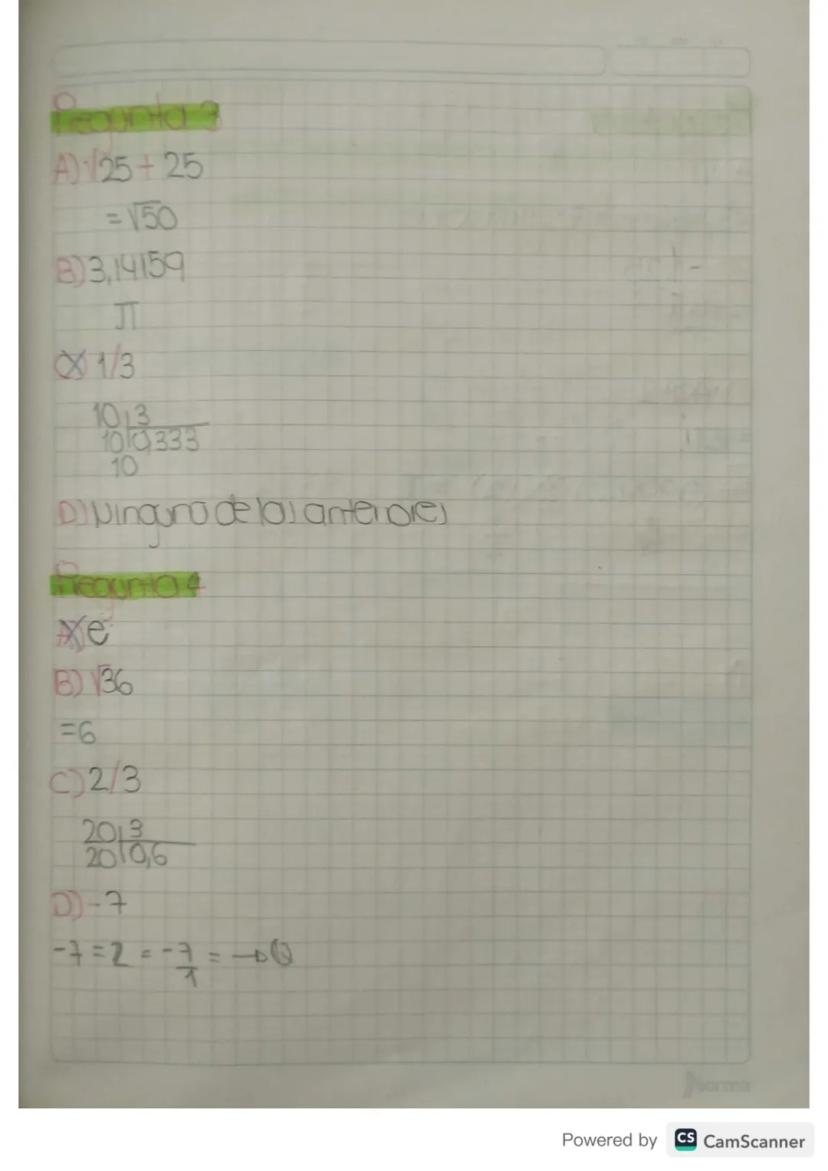 Pregunta 3
A) √25 + 25
= √50
B) 3,14159
π
C) 1/3
10 3
10 0,333
10
D) Ninguna de las anteriores
Pregunta 4
A) e
B) √36
= 6
C) 2/3
20 3
20 0,6
D) -7
-7 = Z = -7/1 = → Q
Norma
Powered by CS CamScanner